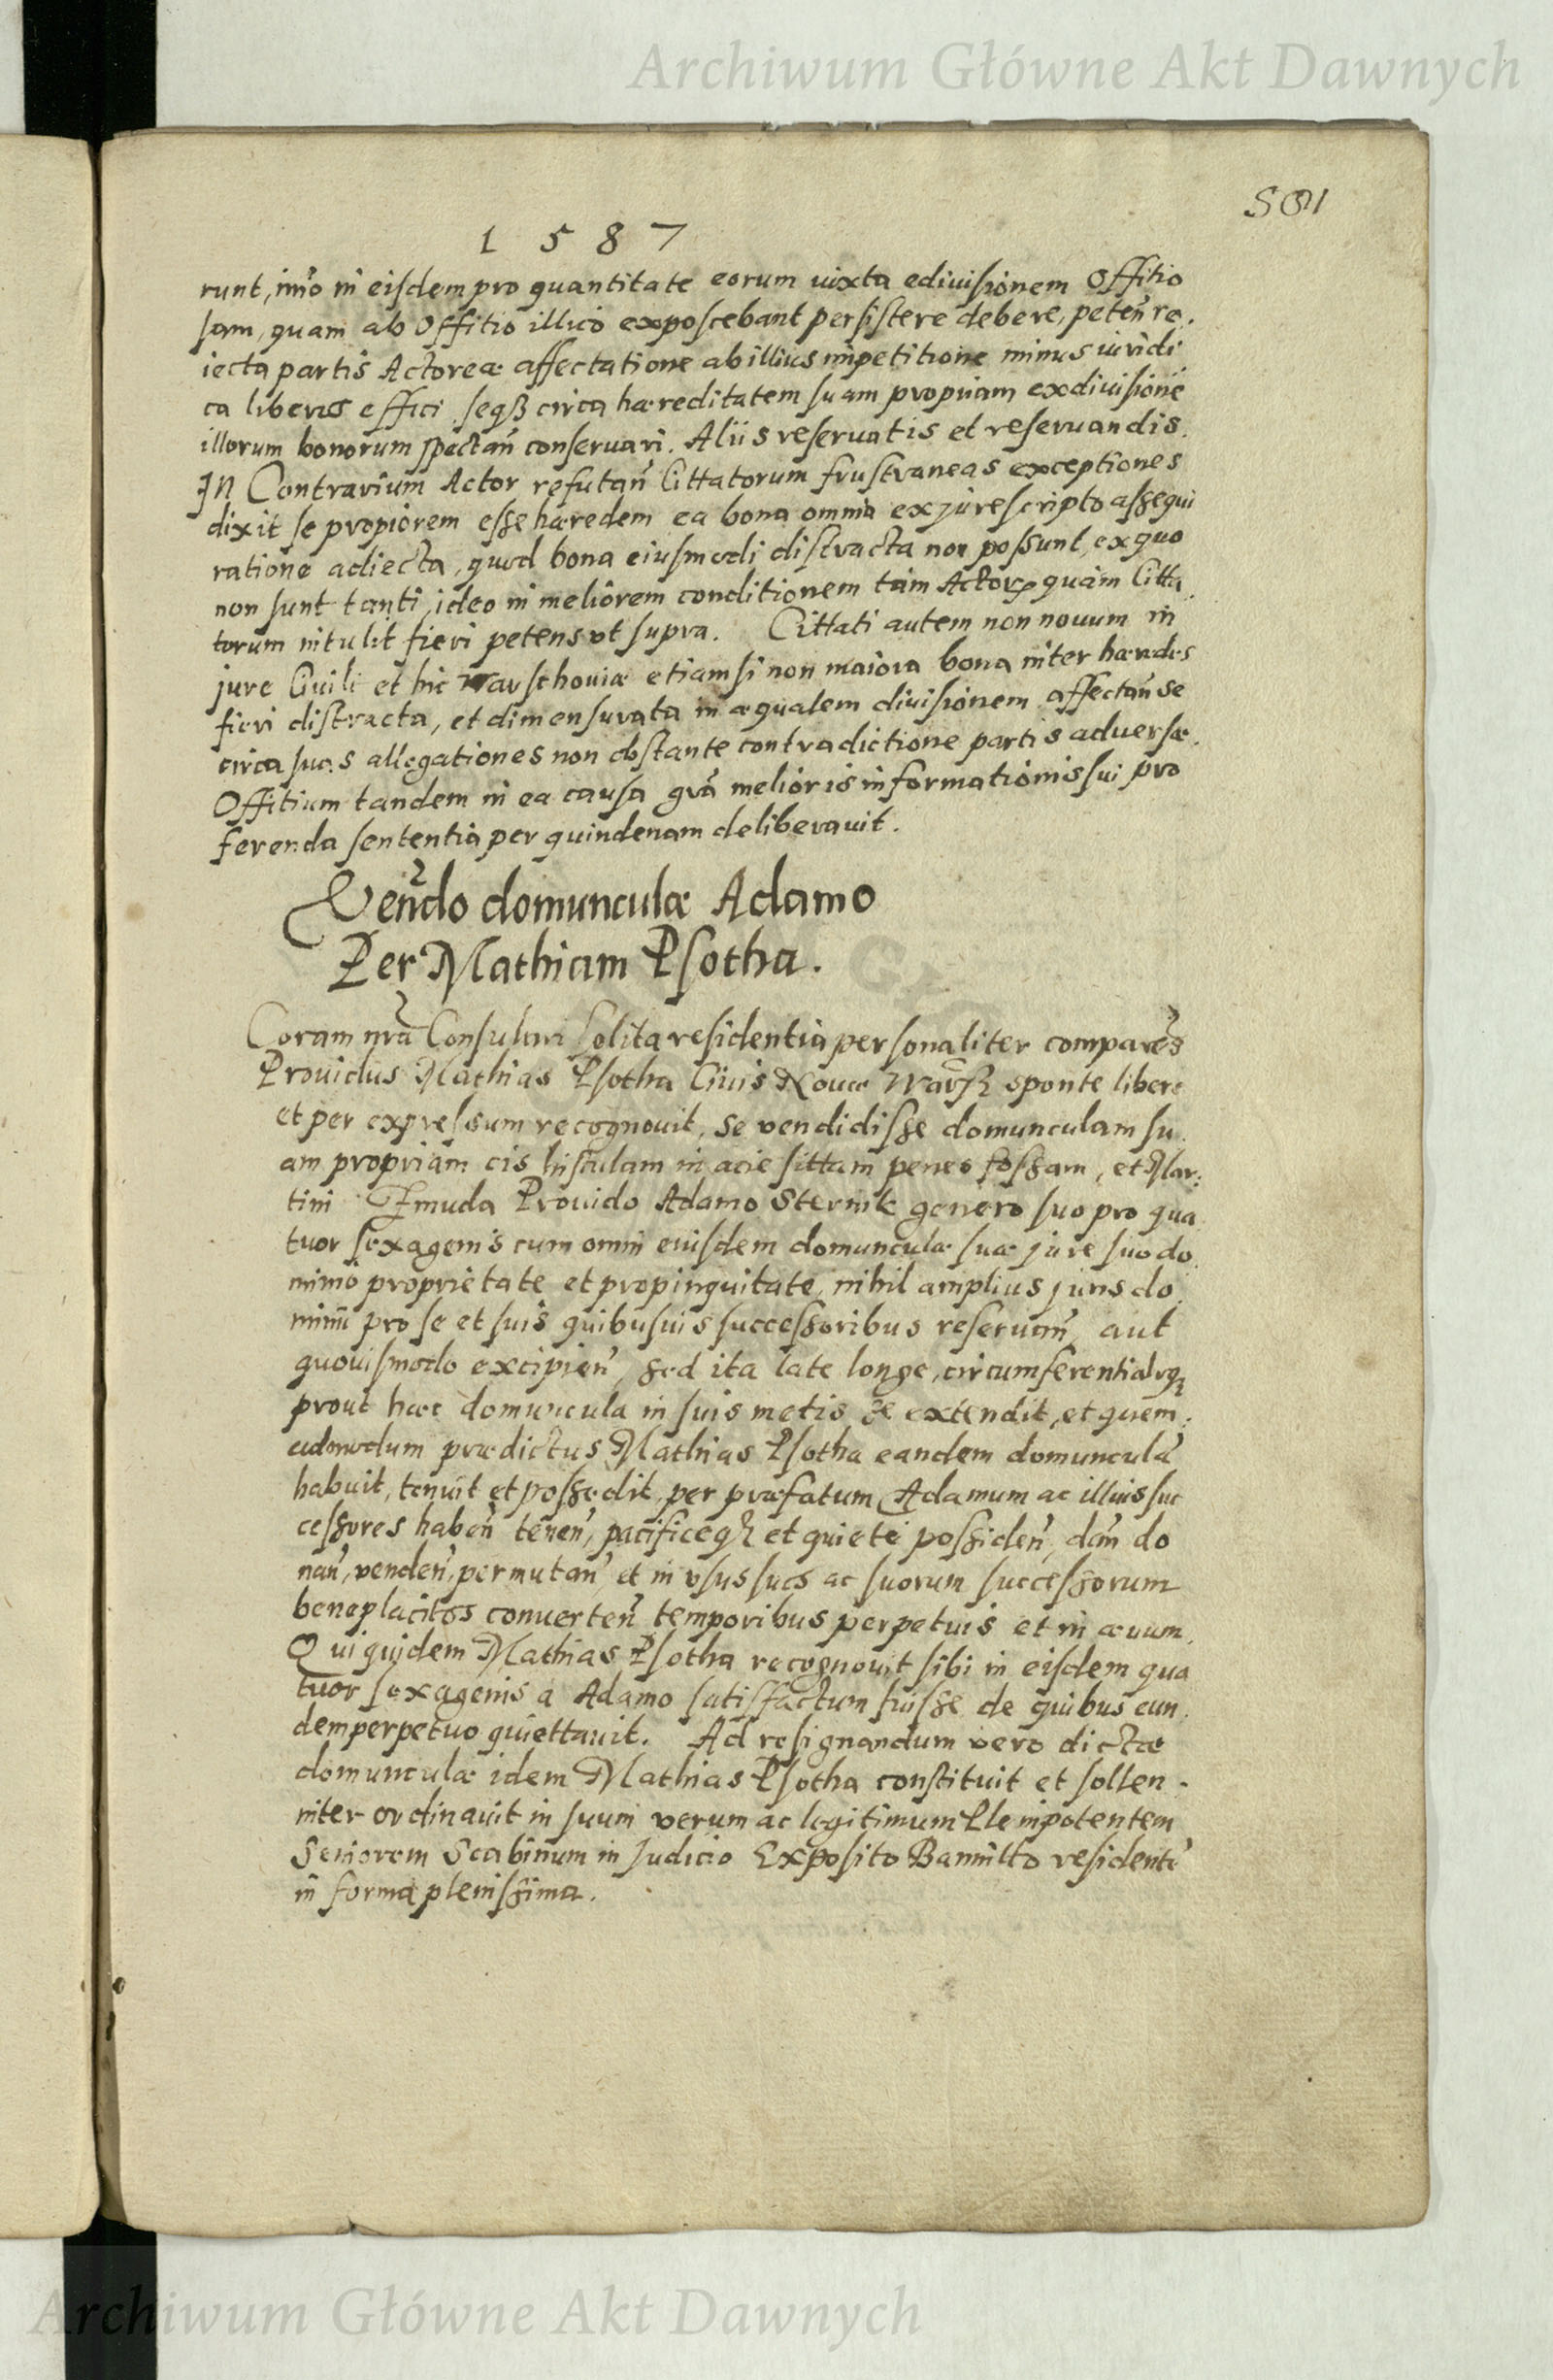 Archiwum Główne Akt Dawnych
501
1 5 8 7
runt, im̃o in eisdem pro quantitate eorum iuxta edivisionem Offitio
sam, quam ab Offitio illico exposcebant persistere debere, peteñ re.
iecta partis Actoreæ affectatione ab illius impetitione minus iuridi
ca liberos effici seqȝ circa hæreditatem suam propriam ex divisiõe
illorum bonorum spectañ conservari. Aliis reservatis et reservandis.
In Contrarium Actor refutañ Cittatorum frustraneas exceptiones
dixit se propiorem esse hæredem ea bona omnia ex jure scripto assequi
ratione adiecta, quod bona eiusmodi distracta non possunt, ex quo
non sunt tanti, ideo in meliorem conditionem tam Actorꝝ quam Citta
torum intulit fieri petens ut supra. Cittati autem non novum in
jure Civili et hic Warschoviæ etiamsi non maiora bona inter hæredes
fieri distracta, et dimensurata in æqualem divisionem affectañ se
circa suas allegationes non obstante contradictione partis adversæ.
Offitium tandem in ea causa grã melioris informationis sui pro
ferenda sententia per quindenam deliberavit.
Veñdo domunculæ Adamo
Per Mathiam Psotha.
Coram nrã Consulari solita residentia personaliter compareñs
Providus Mathias Psotha Civis Novæ Warsz sponte libere
et per expressum recognovit, se vendidisse domunculam su
am propriam cis Vistulam in acie sittam penes fossam, et Mar:
tini Zmuda Provido Adamo Sternik genero suo pro qua
tuor sexagenis cum omni eiusdem domunculæ suæ jure suo do
minio proprietate et propinquitate, nihil amplius juris do
minii pro se et suis quibusvis successoribus reservañ, aut
quovismodo excipieñ, sed ita late longe, circumferentialrqȝ
prout hæc domuncula in suis metis se extendit, et quem:
admodum prædictus Mathias Psotha eandem domunculã
habuit, tenuit et possedit, per præfatum Adamum ac illius suc
cessores habeñ teneñ, pacificeqȝ et quiete possideñ, dañ do
nañ, vendeñ, permutañ et in usus suos ac suorum successorum
beneplacitos converteñ temporibus perpetuis et in ævum.
Qui quidem Mathias Psotha recognovit sibi in eisdem qua
tuor sexagenis a Adamo satisfactum fuisse de quibus eun
dem perpetuo quiettavit. Ad resignandum vero dictæ
domunculæ idem Mathias Psotha constituit et sollen-
niter ordinavit in suum verum ac legitimum Plenipotentem
Seniorem Scabinum in Judicio Exposito Bannitto residentẽ
in forma plenissima.
Archiwum Główne Akt Dawnych